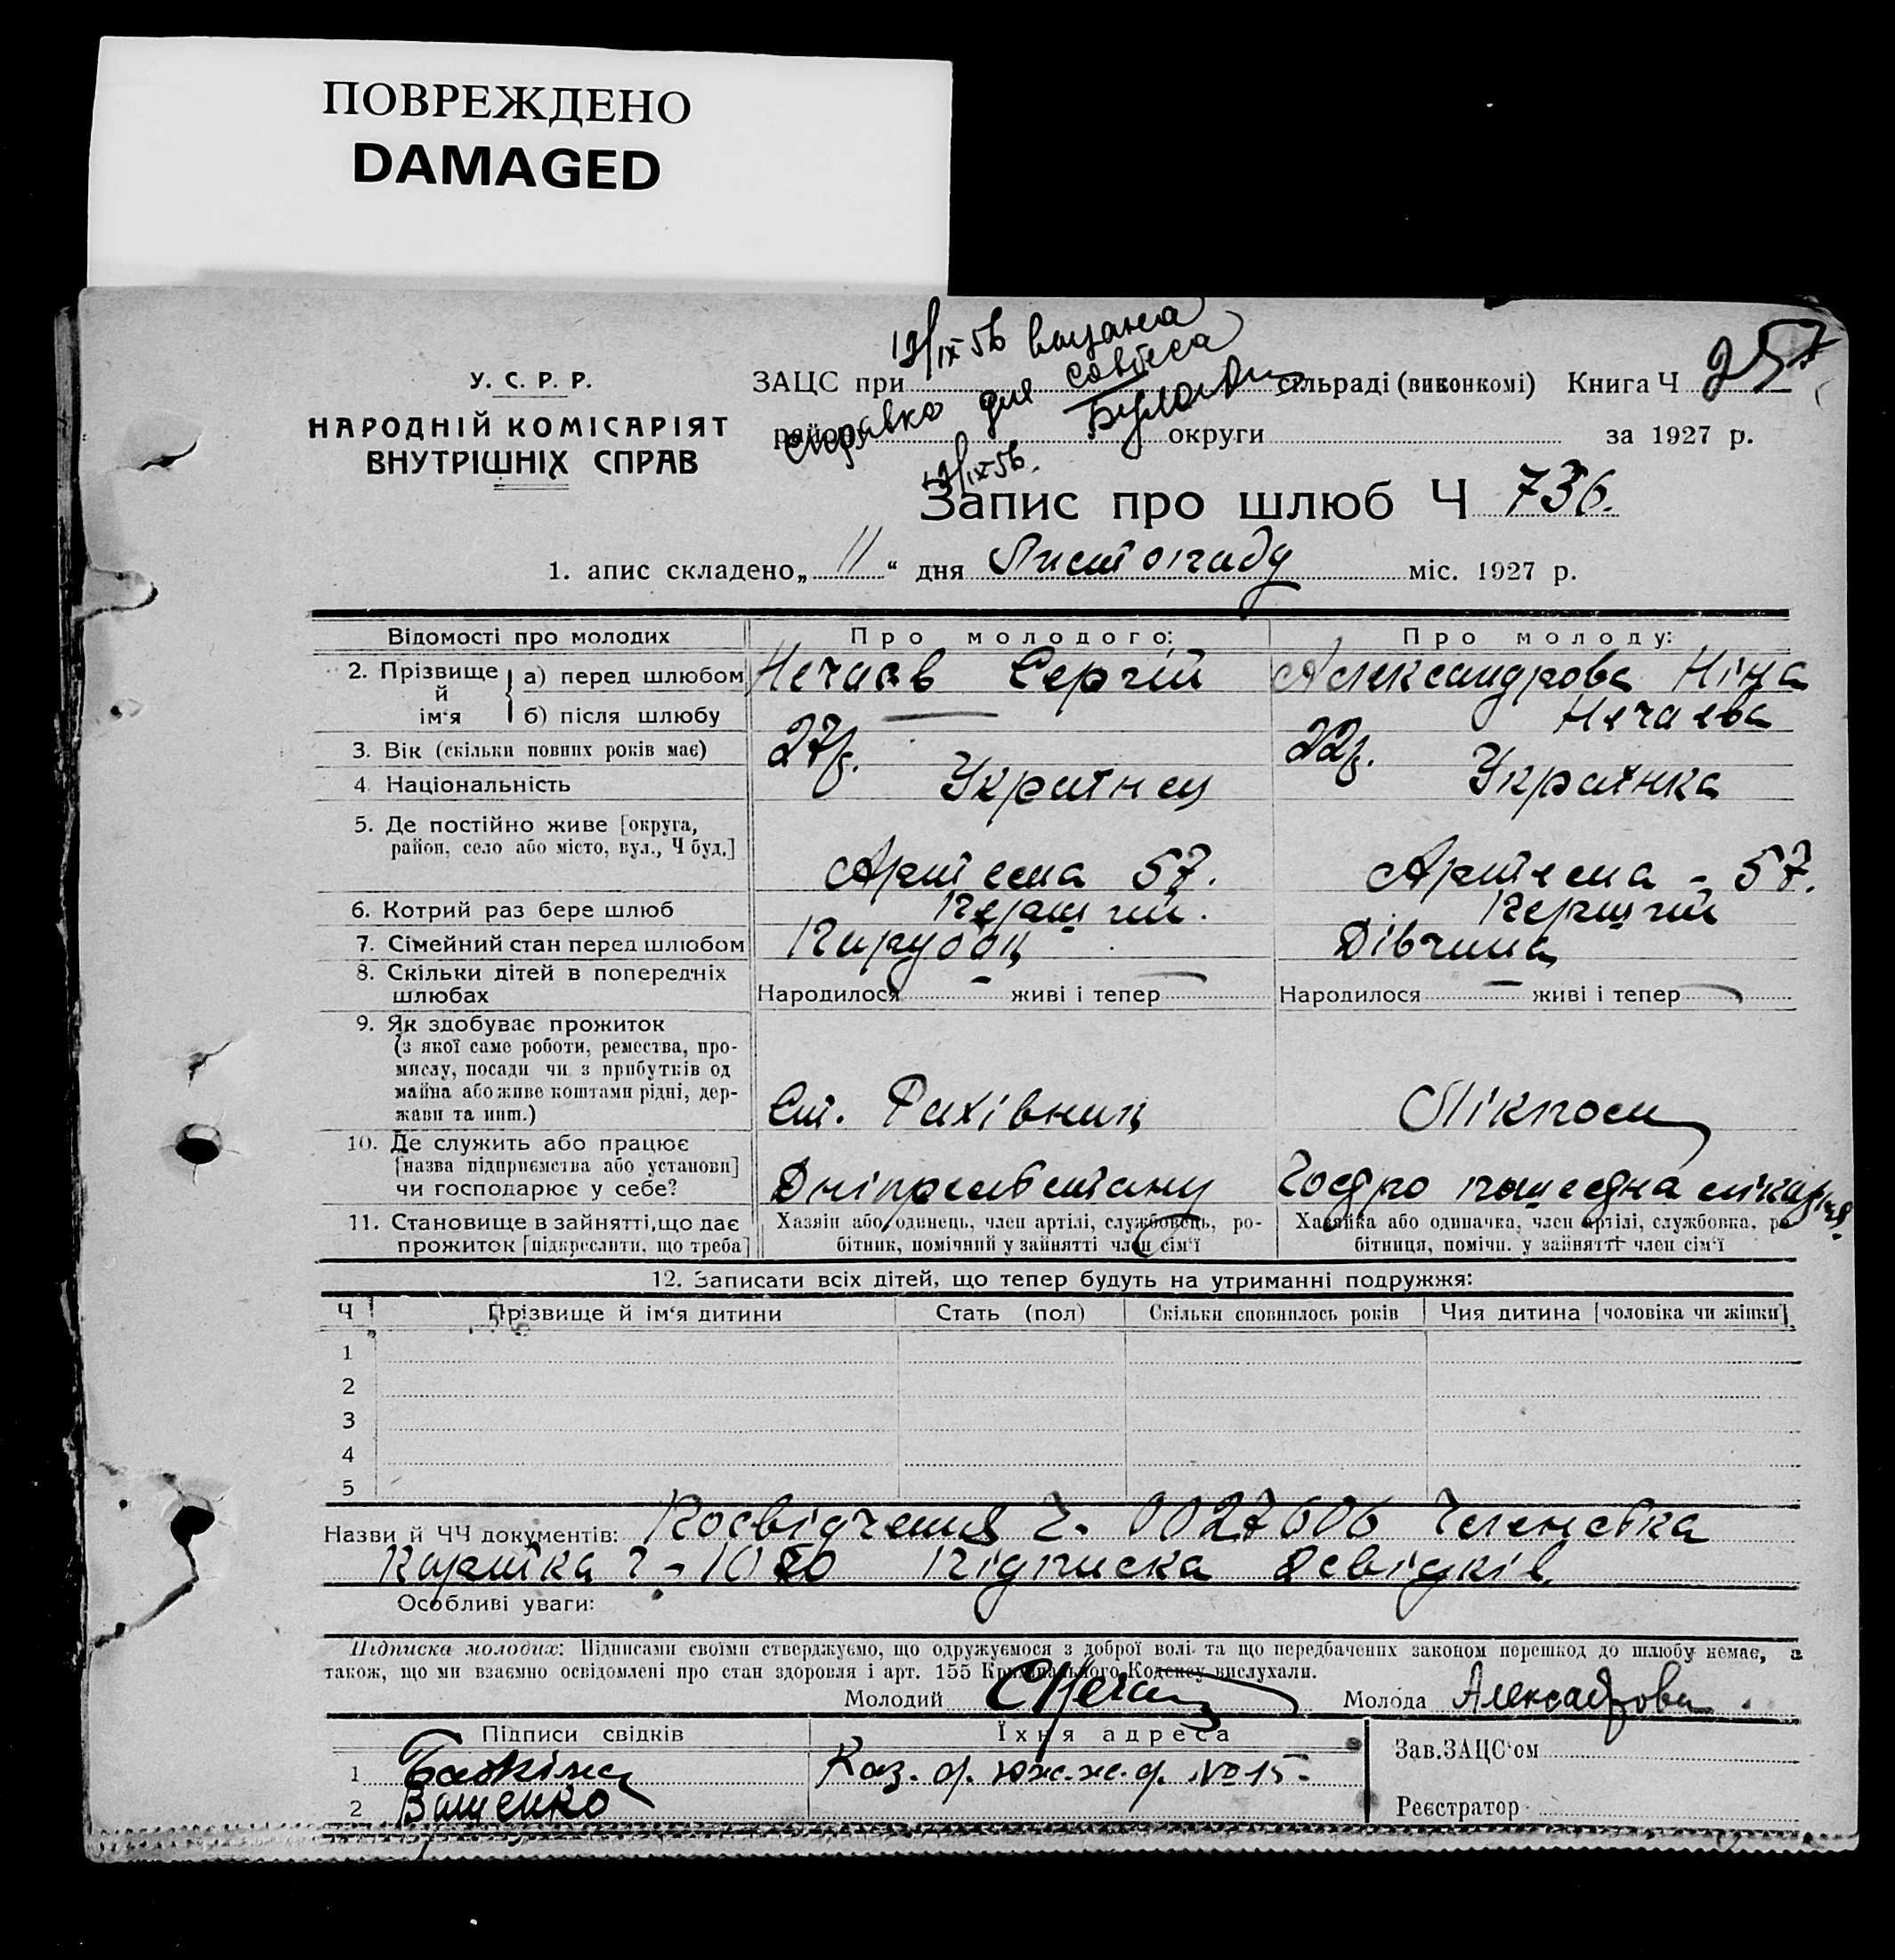 ПОВРЕЖДЕНО
DAMAGED
12/IX 56 выдана
справка для собеса
12/IX 56.
У. С. Р. Р.
НАРОДНІЙ КОМІСАРІЯТ
ВНУТРІШНІХ СПРАВ
ЗАЦС при сільраді (виконкомі) Книга Ч 257
району округи за 1927 р.
Запис про шлюб Ч 736.
1. апис складено „11“ дня Листопаду міс. 1927 р.
Відомості про молодих Про молодого: Про молоду:
2. Прізвище й ім‘я а) перед шлюбом Нечаєв Сергій Александрова Ніна
б) після шлюбу — Нечаєва
3. Вік (скільки повних років має) 27р. 22р.
4. Національність Українець Українка
5. Де постійно живе [округа,
район, село або місто, вул., Ч буд.] Артема 57. Артема - 57.
6. Котрий раз бере шлюб Перший. Перший
7. Сімейний стан перед шлюбом Парубоц Дівчина
8. Скільки дітей в попередніх
шлюбах Народилося — живі і тепер — Народилося — живі і тепер —
9. Як здобуває прожиток
(з якої саме роботи, ремества, про-
мислу, посади чи з прибутків од
майна або живе коштами рідні, дер-
жави та инш.) Ст. Рахівниц Лікпом
10. Де служить або працює
[назва підприємства або установи]
чи господарює у себе?
11. Становище в зайнятті, що дає
прожиток [підкреслити, що треба]
Хазяін або одинець, член артілі, службовець, ро-
бітник, помічний у зайнятті член сім‘ї
Хазяйка або одиначка, член артілі, службовка, ро
бітниця, помічн. у зайнятті член сім‘ї
12. Записати всіх дітей, що тепер будуть на утриманні подружжя:
Ч Прізвище й ім‘я дитини Стать (пол) Скільки сповнилось років Чия дитина [чоловіка чи жінки]
1
2
3
4
5
Назви й ЧЧ документів: Посвідчення Ч. 0027606 Членська
Картка Ч - Підписка свідків
Особливі уваги:
Підписка молодих: Підписами своїми стверджуємо, що одружуємося з доброї волі та що передбачених законом перешкод до шлюбу немає, а
також, що ми взаємно освідомлені про стан здоровля і арт. 155 Кримінального Кодексу вислухали.
Молодий Молода Александрова
Підписи свідків Їхня адреса Зав.ЗАЦС‘ом
1
2 Ващенко
Реєстратор